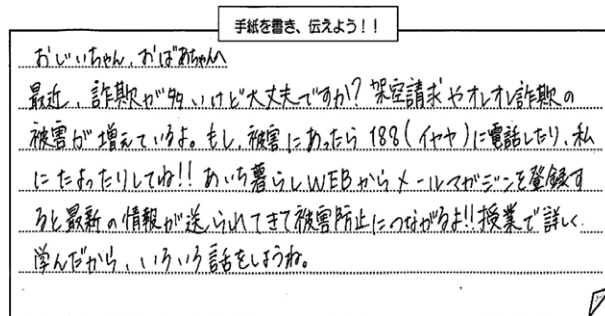 手紙を書き、伝えよう！！
おじいちゃん、おばあちゃん
最近、詐欺が多いけど大丈夫ですか？架空請求やオレオレ詐欺の
被害が増えているよ。もし、被害にあったら188(イヤヤ)に電話したり、私
にたよったりしてね!!あいち暮らしWEBからメールマガジンを登録す
ると最新の情報が送られてきて被害防止につながるよ!!授業で詳しく
学んだから、いろいろ話をしようね。